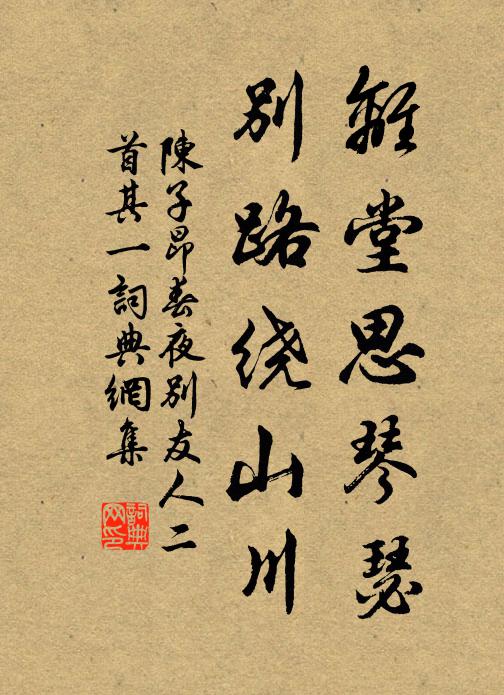 離堂思琴瑟
別路绕山川
陳子昂春夜別友人二
首其一詞典網集
詞典网印